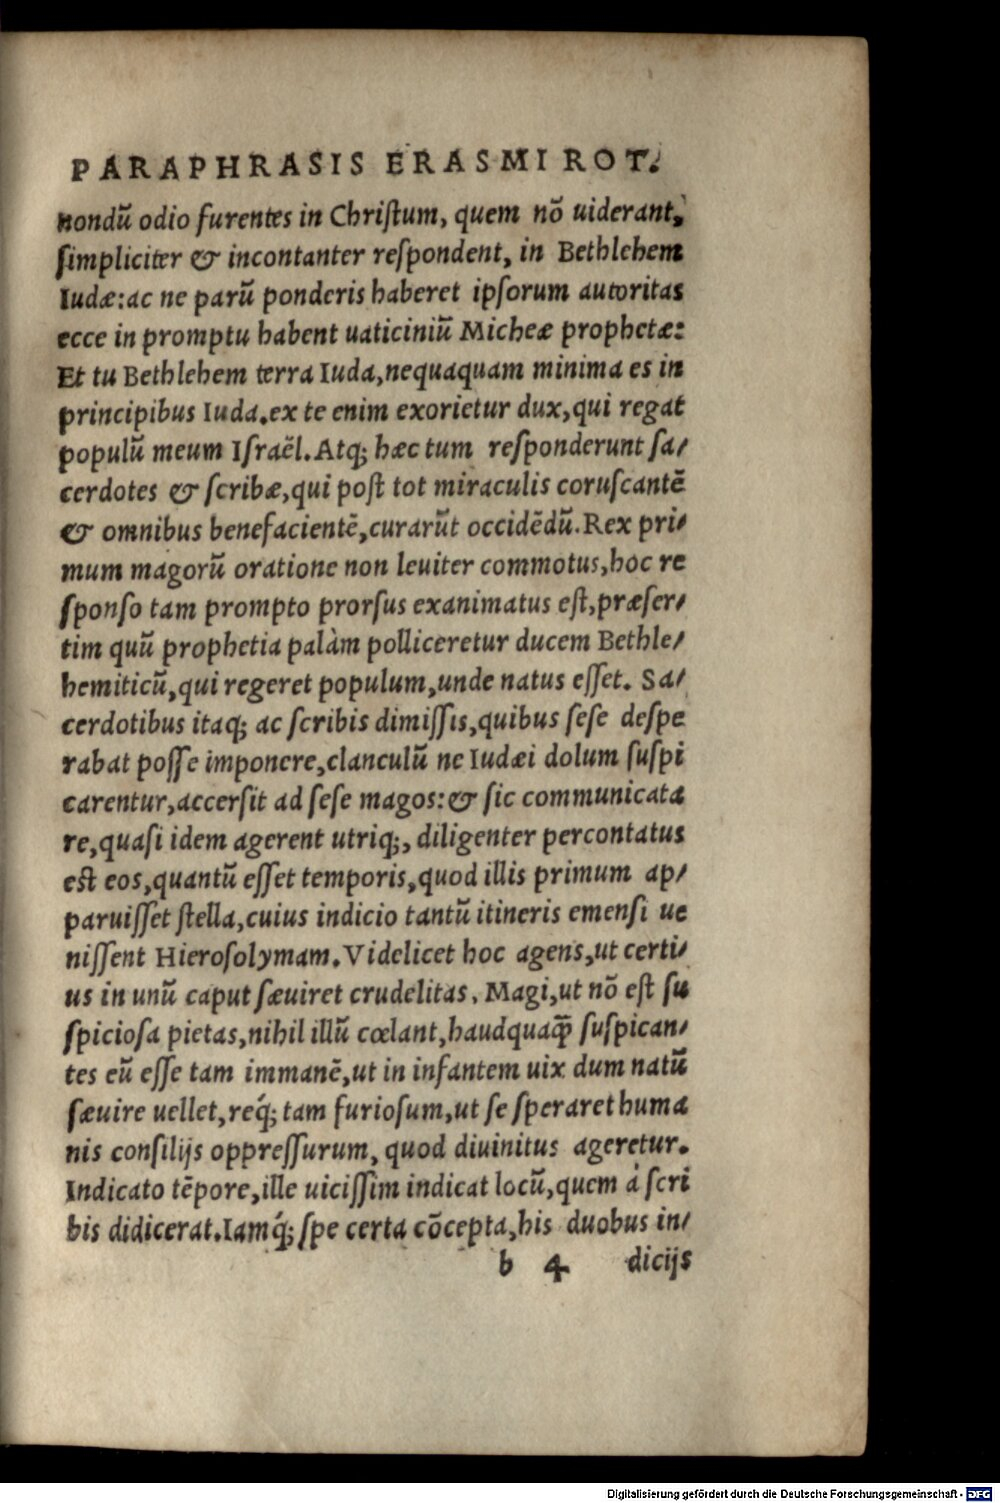 PARAPHRASIS ERASMI ROT.
nondũ odio furentes in Chriſtum, quem nõ uiderant,
ſimpliciter & incontanter reſpondent, in Bethlehem
Iudæ: ac ne parũ ponderis haberet ipſorum autoritas
ecce in promptu habent uaticiniũ Micheæ prophetæ:
Et tu Bethlehem terra Iuda, nequaquam minima es in
principibus Iuda. ex te enim exorietur dux, qui regat
populũ meum Iſraël. Atq; hæc tum reſponderunt ſa/
cerdotes & ſcribæ, qui poſt tot miraculis coruſcantẽ
& omnibus benefacientẽ, curarũt occidẽdũ. Rex pri/
mum magorũ oratione non leuiter commotus, hoc re
ſponſo tam prompto prorſus exanimatus eſt, præſer/
tim quũ prophetia palàm polliceretur ducem Bethle/
hemiticũ, qui regeret populum, unde natus eſſet. Sa/
cerdotibus itaq; ac ſcribis dimiſſis, quibus ſeſe deſpe
rabat poſſe imponere, clanculũ ne Iudæi dolum ſuſpi
carentur, accerſit ad ſeſe magos: & ſic communicata
re, quaſi idem agerent utriq;, diligenter percontatus
eſt eos, quantũ eſſet temporis, quod illis primum ap/
paruiſſet ſtella, cuius indicio tantũ itineris emenſi ue
niſſent Hieroſolymam. Videlicet hoc agens, ut certi/
us in unũ caput ſæuiret crudelitas. Magi, ut nõ eſt ſu
ſpicioſa pietas, nihil illũ cœlant, haudquaq̃ ſuſpican/
tes eũ eſſe tam immanẽ, ut in infantem uix dum natũ
ſæuire uellet, req́; tam furioſum, ut ſe ſperaret huma
nis conſilijs oppreſſurum, quod diuinitus ageretur.
Indicato tẽpore, ille uiciſſim indicat locũ, quem à ſcri
bis didicerat. Iamq́; ſpe certa cõcepta, his duobus in/
b 4 dicijs
Digitalisierung gefördert durch die Deutsche Forschungsgemeinschaft - DFG